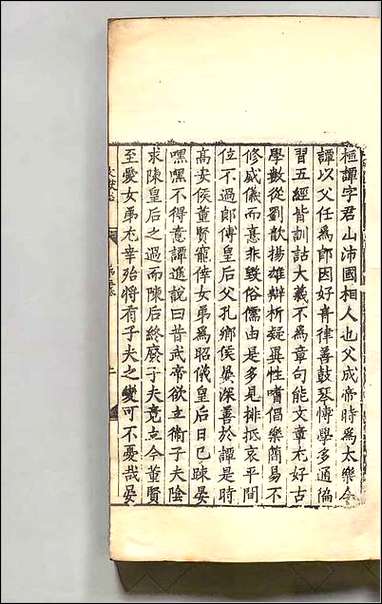 桓譚字君山沛國相人也父成帝時爲太樂令
譚以父任爲郎因好音律善鼓琴博學多通徧
習五經皆訓詁大義不爲章句能文章尤好古
學數從劉歆揚雄辯析疑異性嗜倡樂簡易不
修威儀而憙非毀俗儒由是多見排抵哀平間
位不過郎傅皇后父孔鄉侯晏深善於譚是時
高安侯董賢寵倖女弟爲昭儀皇后日已踈晏
嘿嘿不得意譚進說曰昔武帝欲立衛子夫陰
求陳皇后之過而陳后終廢子夫竟立今董賢
至愛女弟尤幸殆將有子夫之變可不憂哉晏